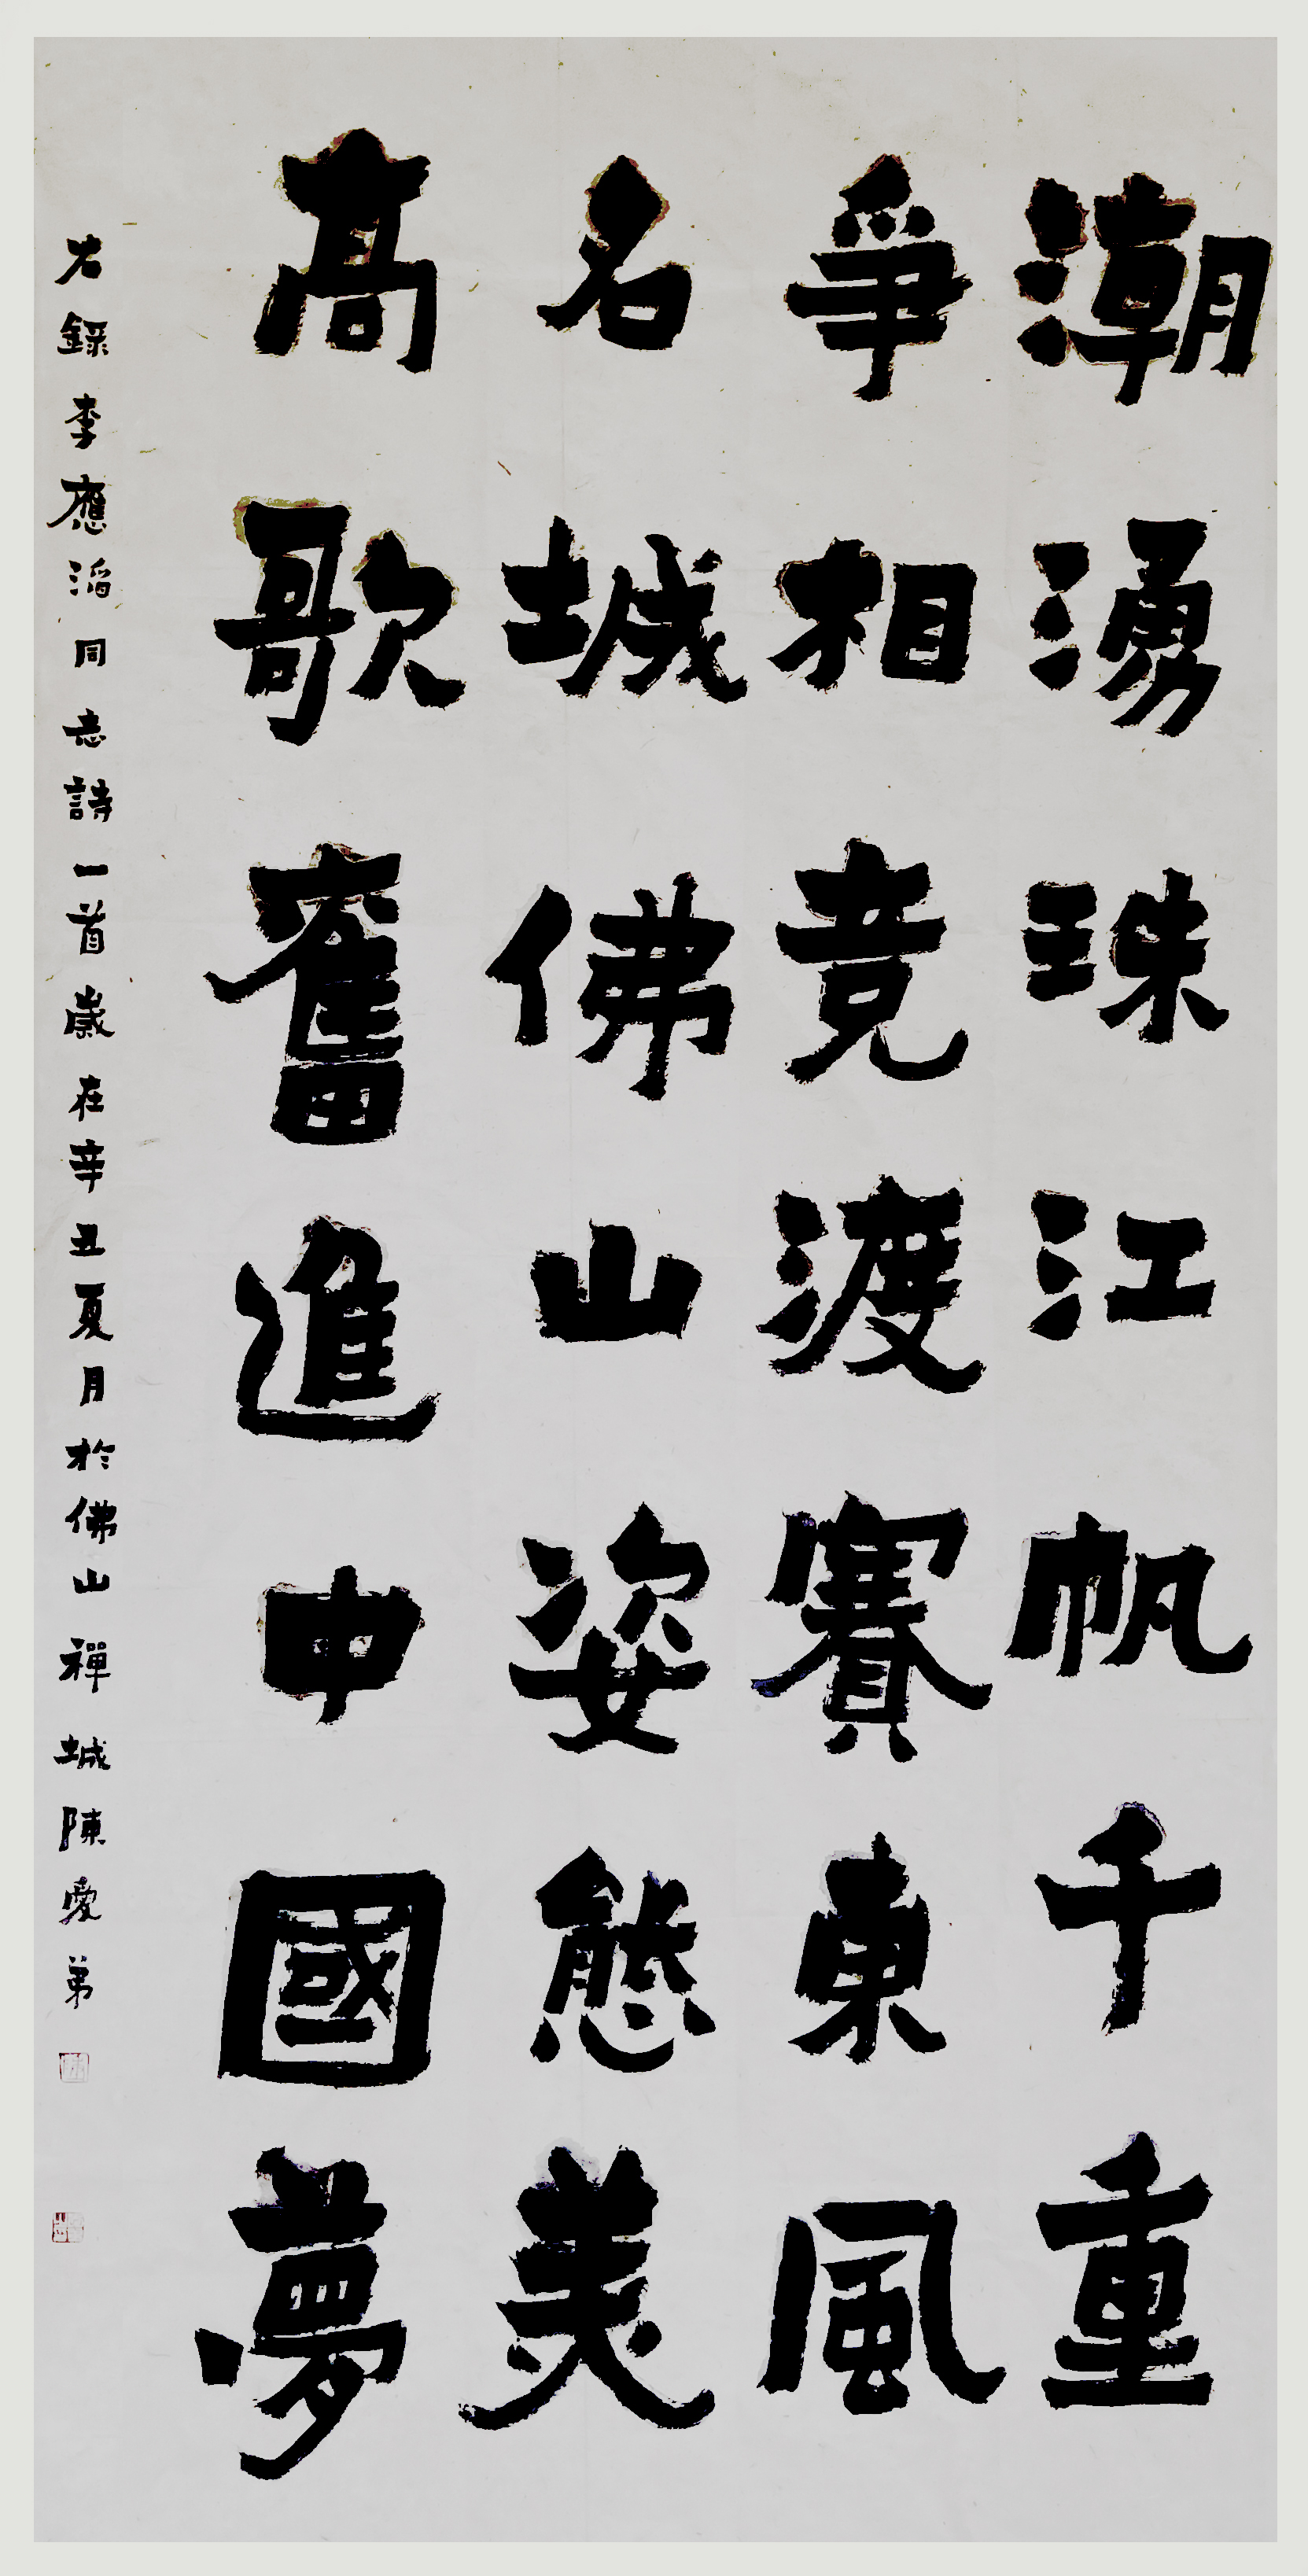 潮湧珠江帆千重
爭相竞渡賽東風
名城佛山姿態美
高歌奮進中國夢
右錄李應滔同志詩一首歲在辛丑夏月於佛山禪城陳愛弟